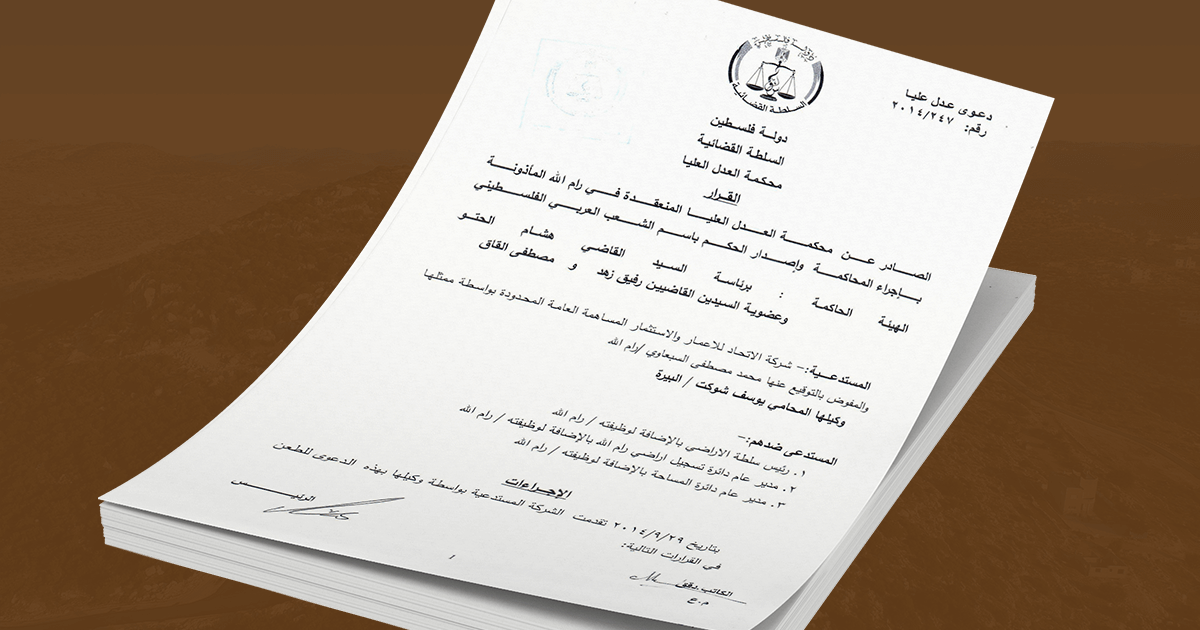 دعوى عدل عليا
رقم: ٢٠١٤/٢٤٧
السلطة القضائية
دولة فلسطين
السلطة القضائية
محكمة العدل العليا
القرار
الصادر عن محكمة العدل العليا المنعقدة في رام الله المأذونة
بإجراء المحاكمة وإصدار الحكم باسم الشعب العربي الفلسطيني
الهيئة الحاكمة : برئاسة السيد القاضي هشام الحتو
وعضوية السيدين القاضيين رفيق زهد و مصطفى القاق
المستدعية:- شركة الاتحاد للاعمار والاستثمار المساهمة العامة المحدودة بواسطة ممثلها
والمفوض بالتوقيع عنها محمد مصطفى السبعاوي /رام الله
وكيلها المحامي يوسف شوكت / البيرة
المستدعى ضدهم:-
١. رئيس سلطة الاراضي بالإضافة لوظيفته / رام الله
٢. مدير عام دائرة تسجيل اراضي رام الله بالإضافة لوظيفته / رام الله
٣. مدير عام دائرة المساحة بالإضافة لوظيفته / رام الله
الإجراءات
بتاريخ ٢٠١٤/٩/٢٩ تقدمت الشركة المستدعية بواسطة وكيلها بهذه الدعوى للطعن
في القرارات التالية:
الكاتب
الرئيس
م.ع
١